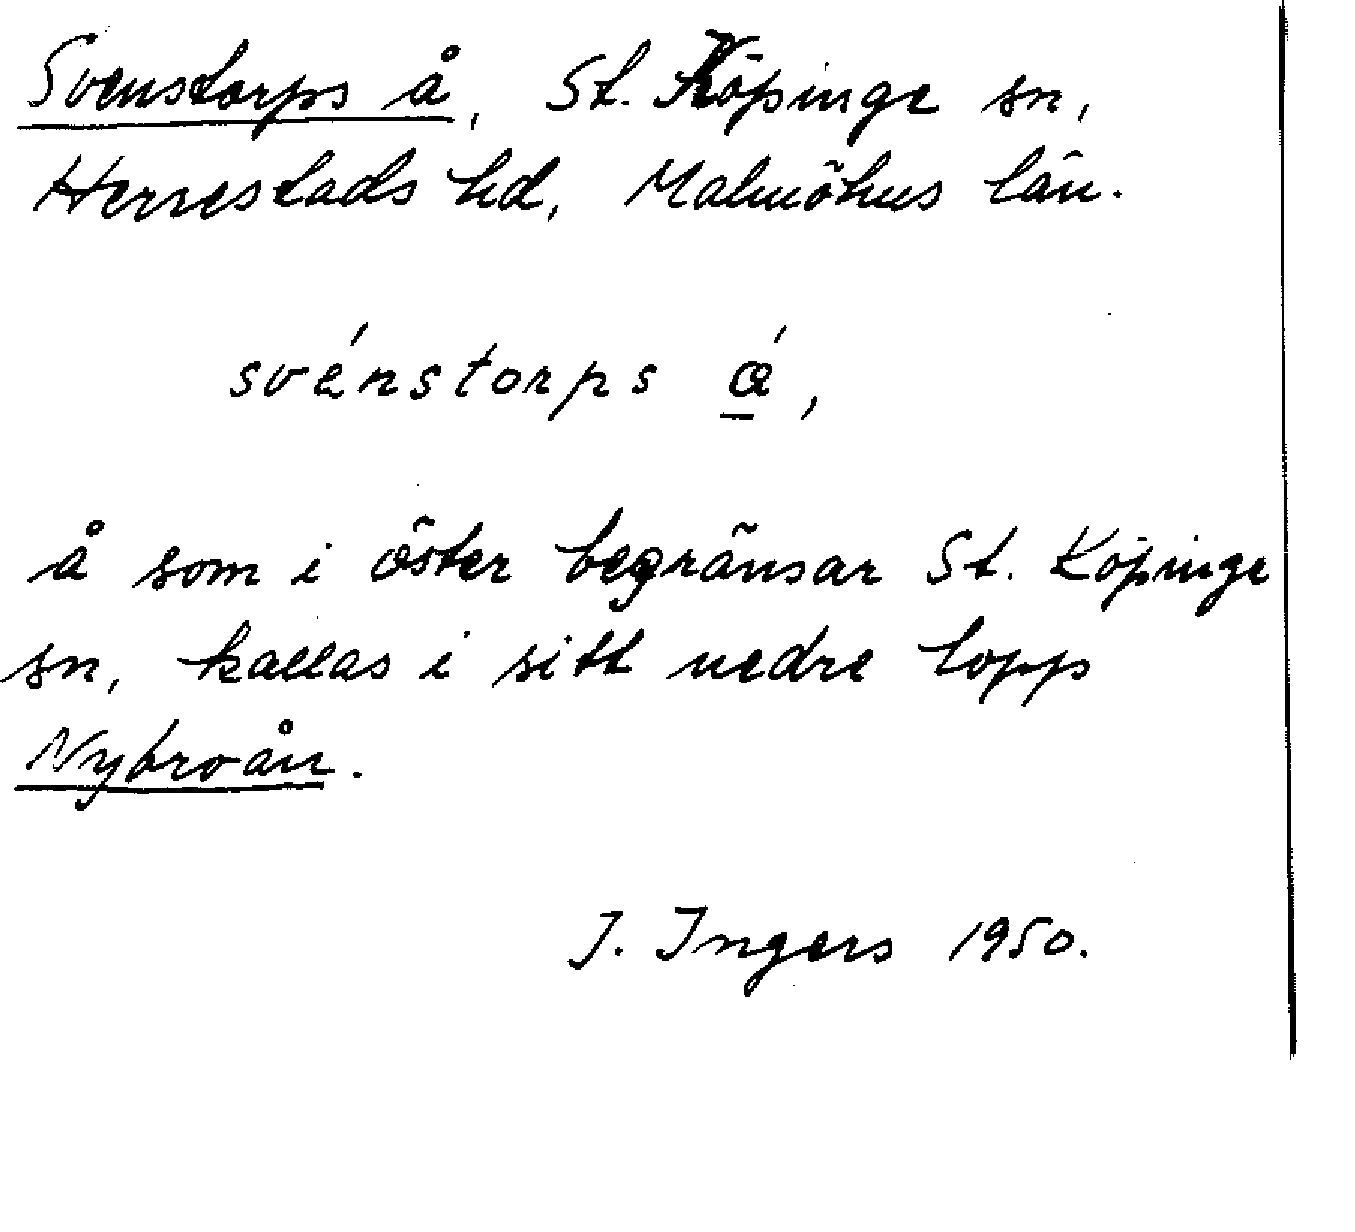 Svenstorps å, St. Köpinge sn,
Herrestads hd, Malmöhus län.
svénstorps œ́,
å som i öster begränsar St. Köpinge
sn, kallas i sitt nedre lopp
Nybroån.
I. Ingers 1950.